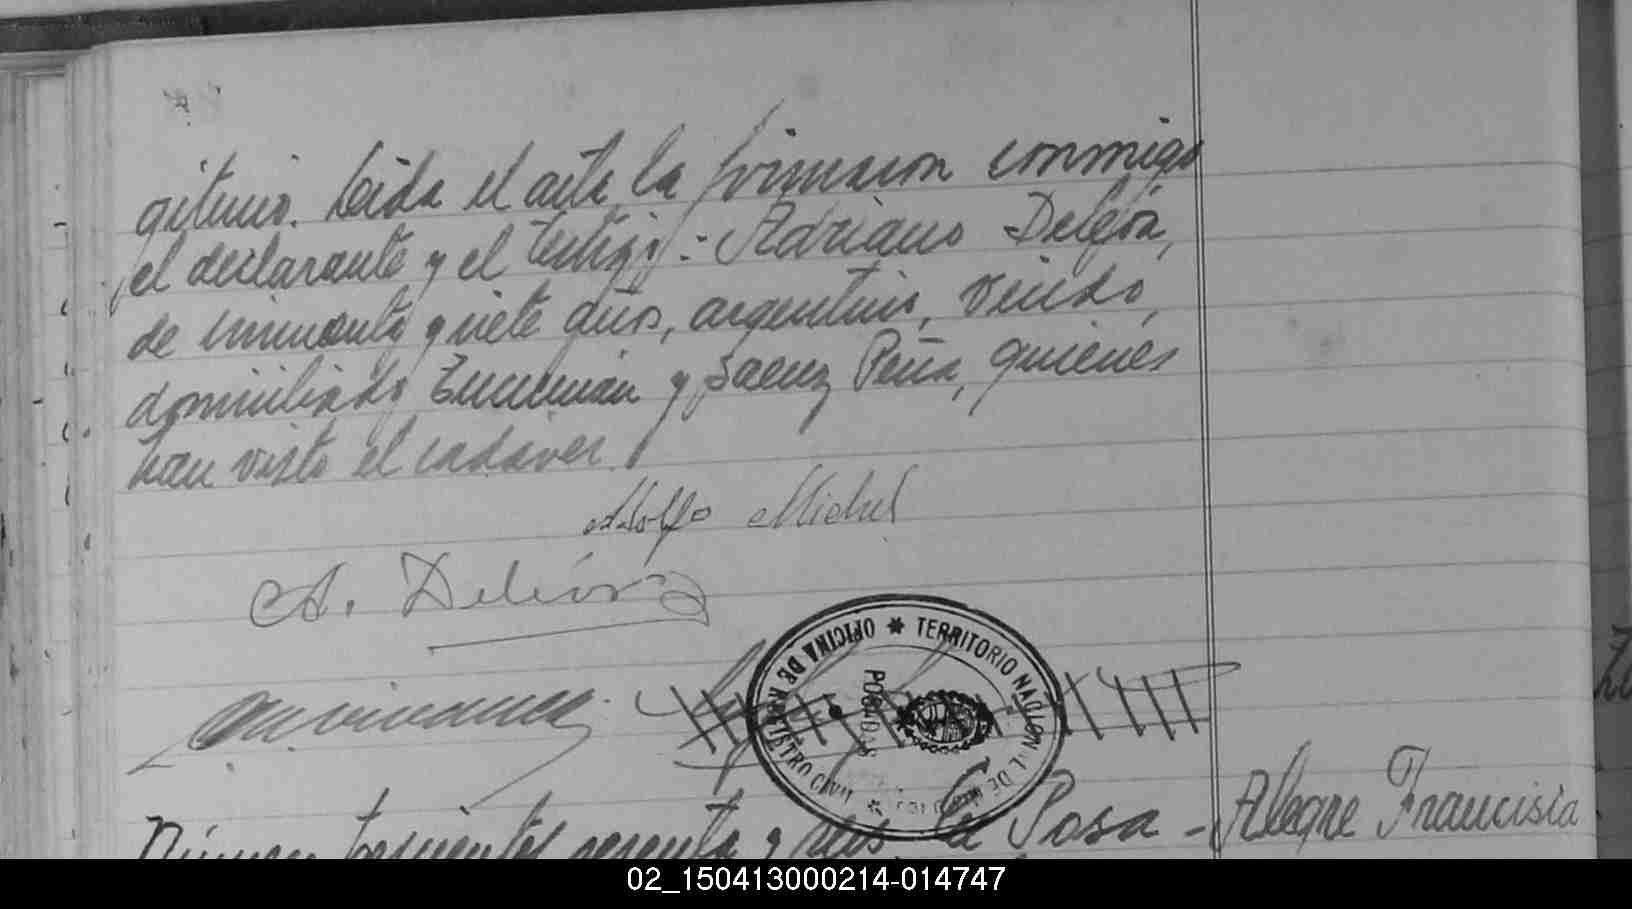 gítimo. Leída el acta la firmaron conmigo
el declarante y el testigo: Adriano Deleón,
de cincuenta y siete años, argentino, viudo,
domiciliado Tucumán y Saenz Peña, quienes
han visto el cadáver.
Adolfo Michel
A. Deleón
OFICINA DE REGISTRO CIVIL * TERRITORIO NACIONAL DE MISIONES *
POSADAS
Número trescientos sesenta y seis. En Posa - Alegre Francisca
02_150413000214-014747